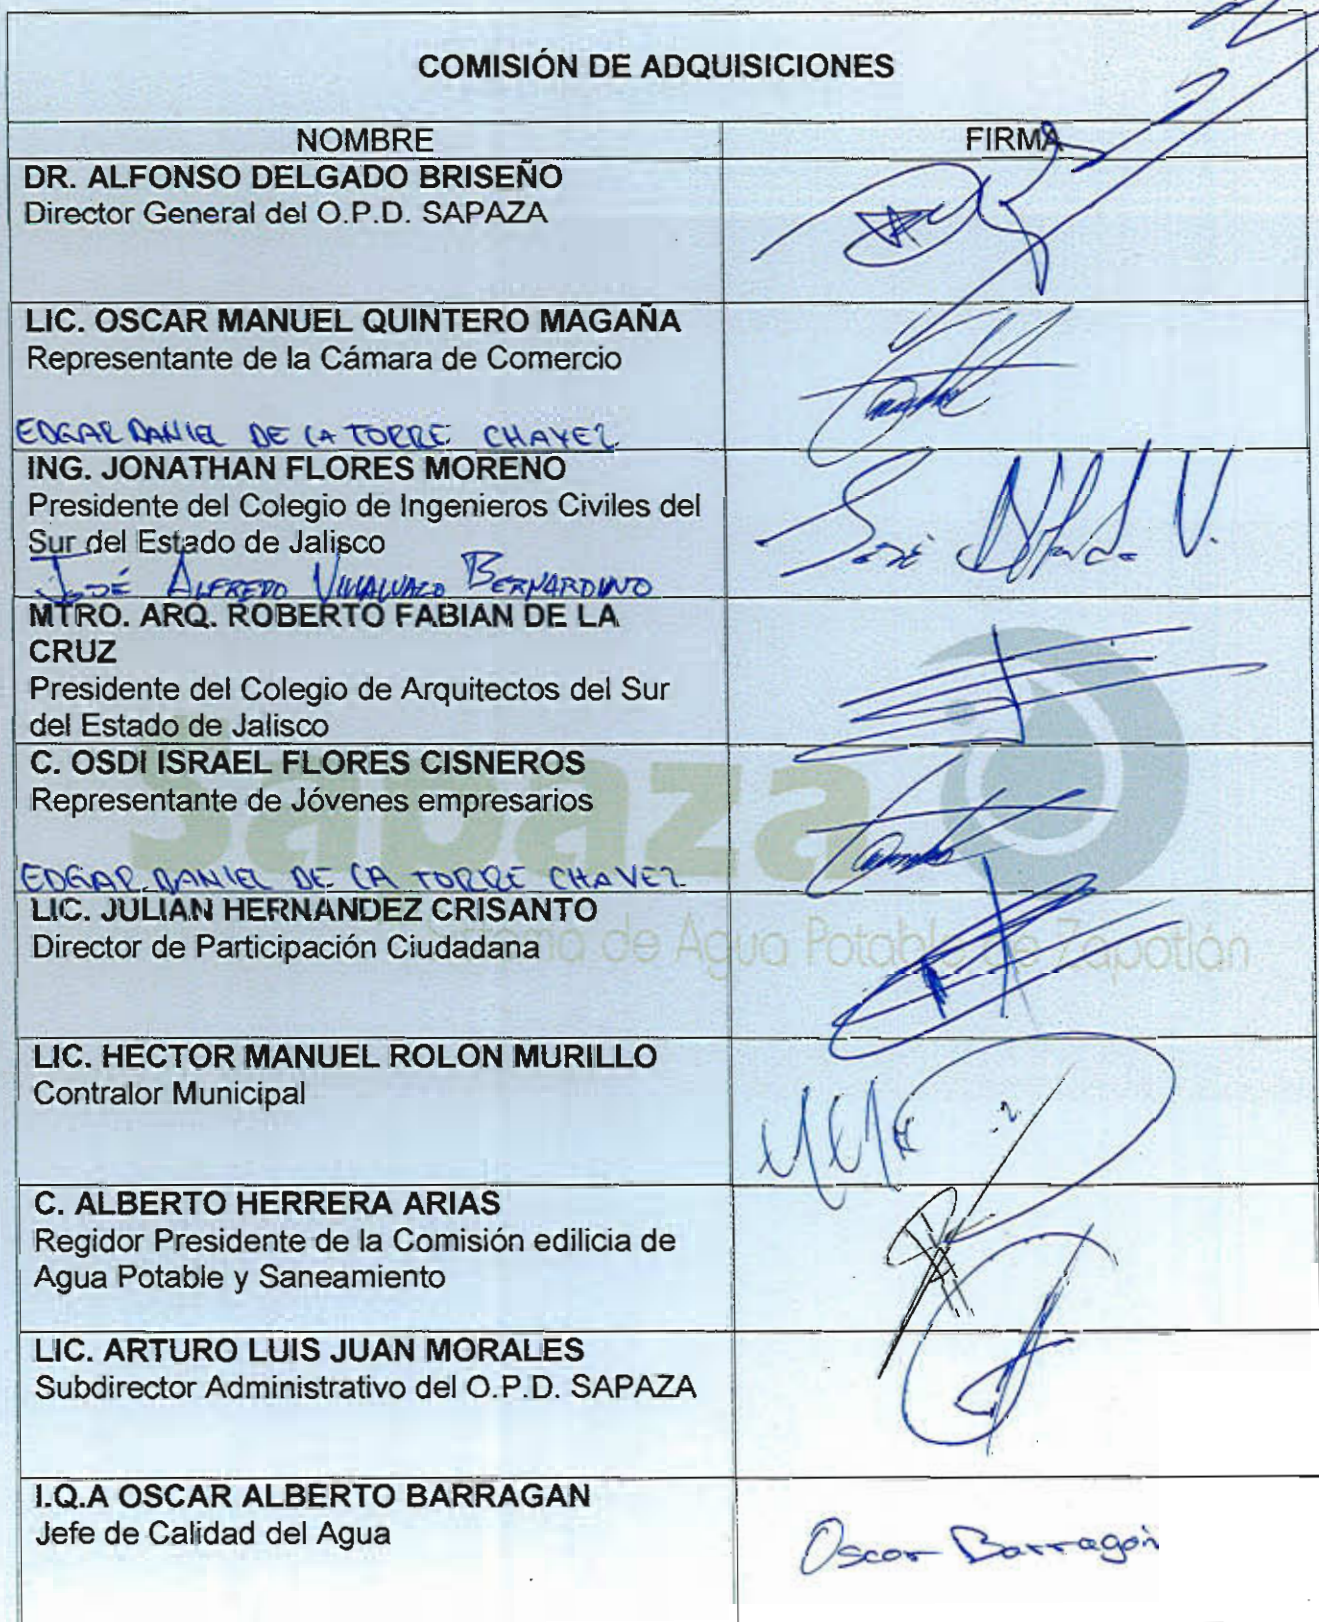 COMISIÓN DE ADQUISICIONES
NOMBRE FIRMA
DR. ALFONSO DELGADO BRISEÑO
Director General del O.P.D. SAPAZA
LIC. OSCAR MANUEL QUINTERO MAGAÑA
Representante de la Cámara de Comercio
EDGAR DANIEL DE LA TORRE CHAVEZ
ING. JONATHAN FLORES MORENO
Presidente del Colegio de Ingenieros Civiles del
Sur del Estado de Jalisco
JOSÉ ALFREDO VILLALVAZO BERNARDINO
José Alfredo V.
MTRO. ARQ. ROBERTO FABIAN DE LA
CRUZ
Presidente del Colegio de Arquitectos del Sur
del Estado de Jalisco
C. OSDI ISRAEL FLORES CISNEROS
Representante de Jóvenes empresarios
EDGAR DANIEL DE LA TORRE CHAVEZ
Sapaza
Sistema de Agua Potable de Zapotlán
LIC. JULIAN HERNANDEZ CRISANTO
Director de Participación Ciudadana
LIC. HECTOR MANUEL ROLON MURILLO
Contralor Municipal
C. ALBERTO HERRERA ARIAS
Regidor Presidente de la Comisión edilicia de
Agua Potable y Saneamiento
LIC. ARTURO LUIS JUAN MORALES
Subdirector Administrativo del O.P.D. SAPAZA
I.Q.A OSCAR ALBERTO BARRAGAN
Jefe de Calidad del Agua
Oscar Barragán